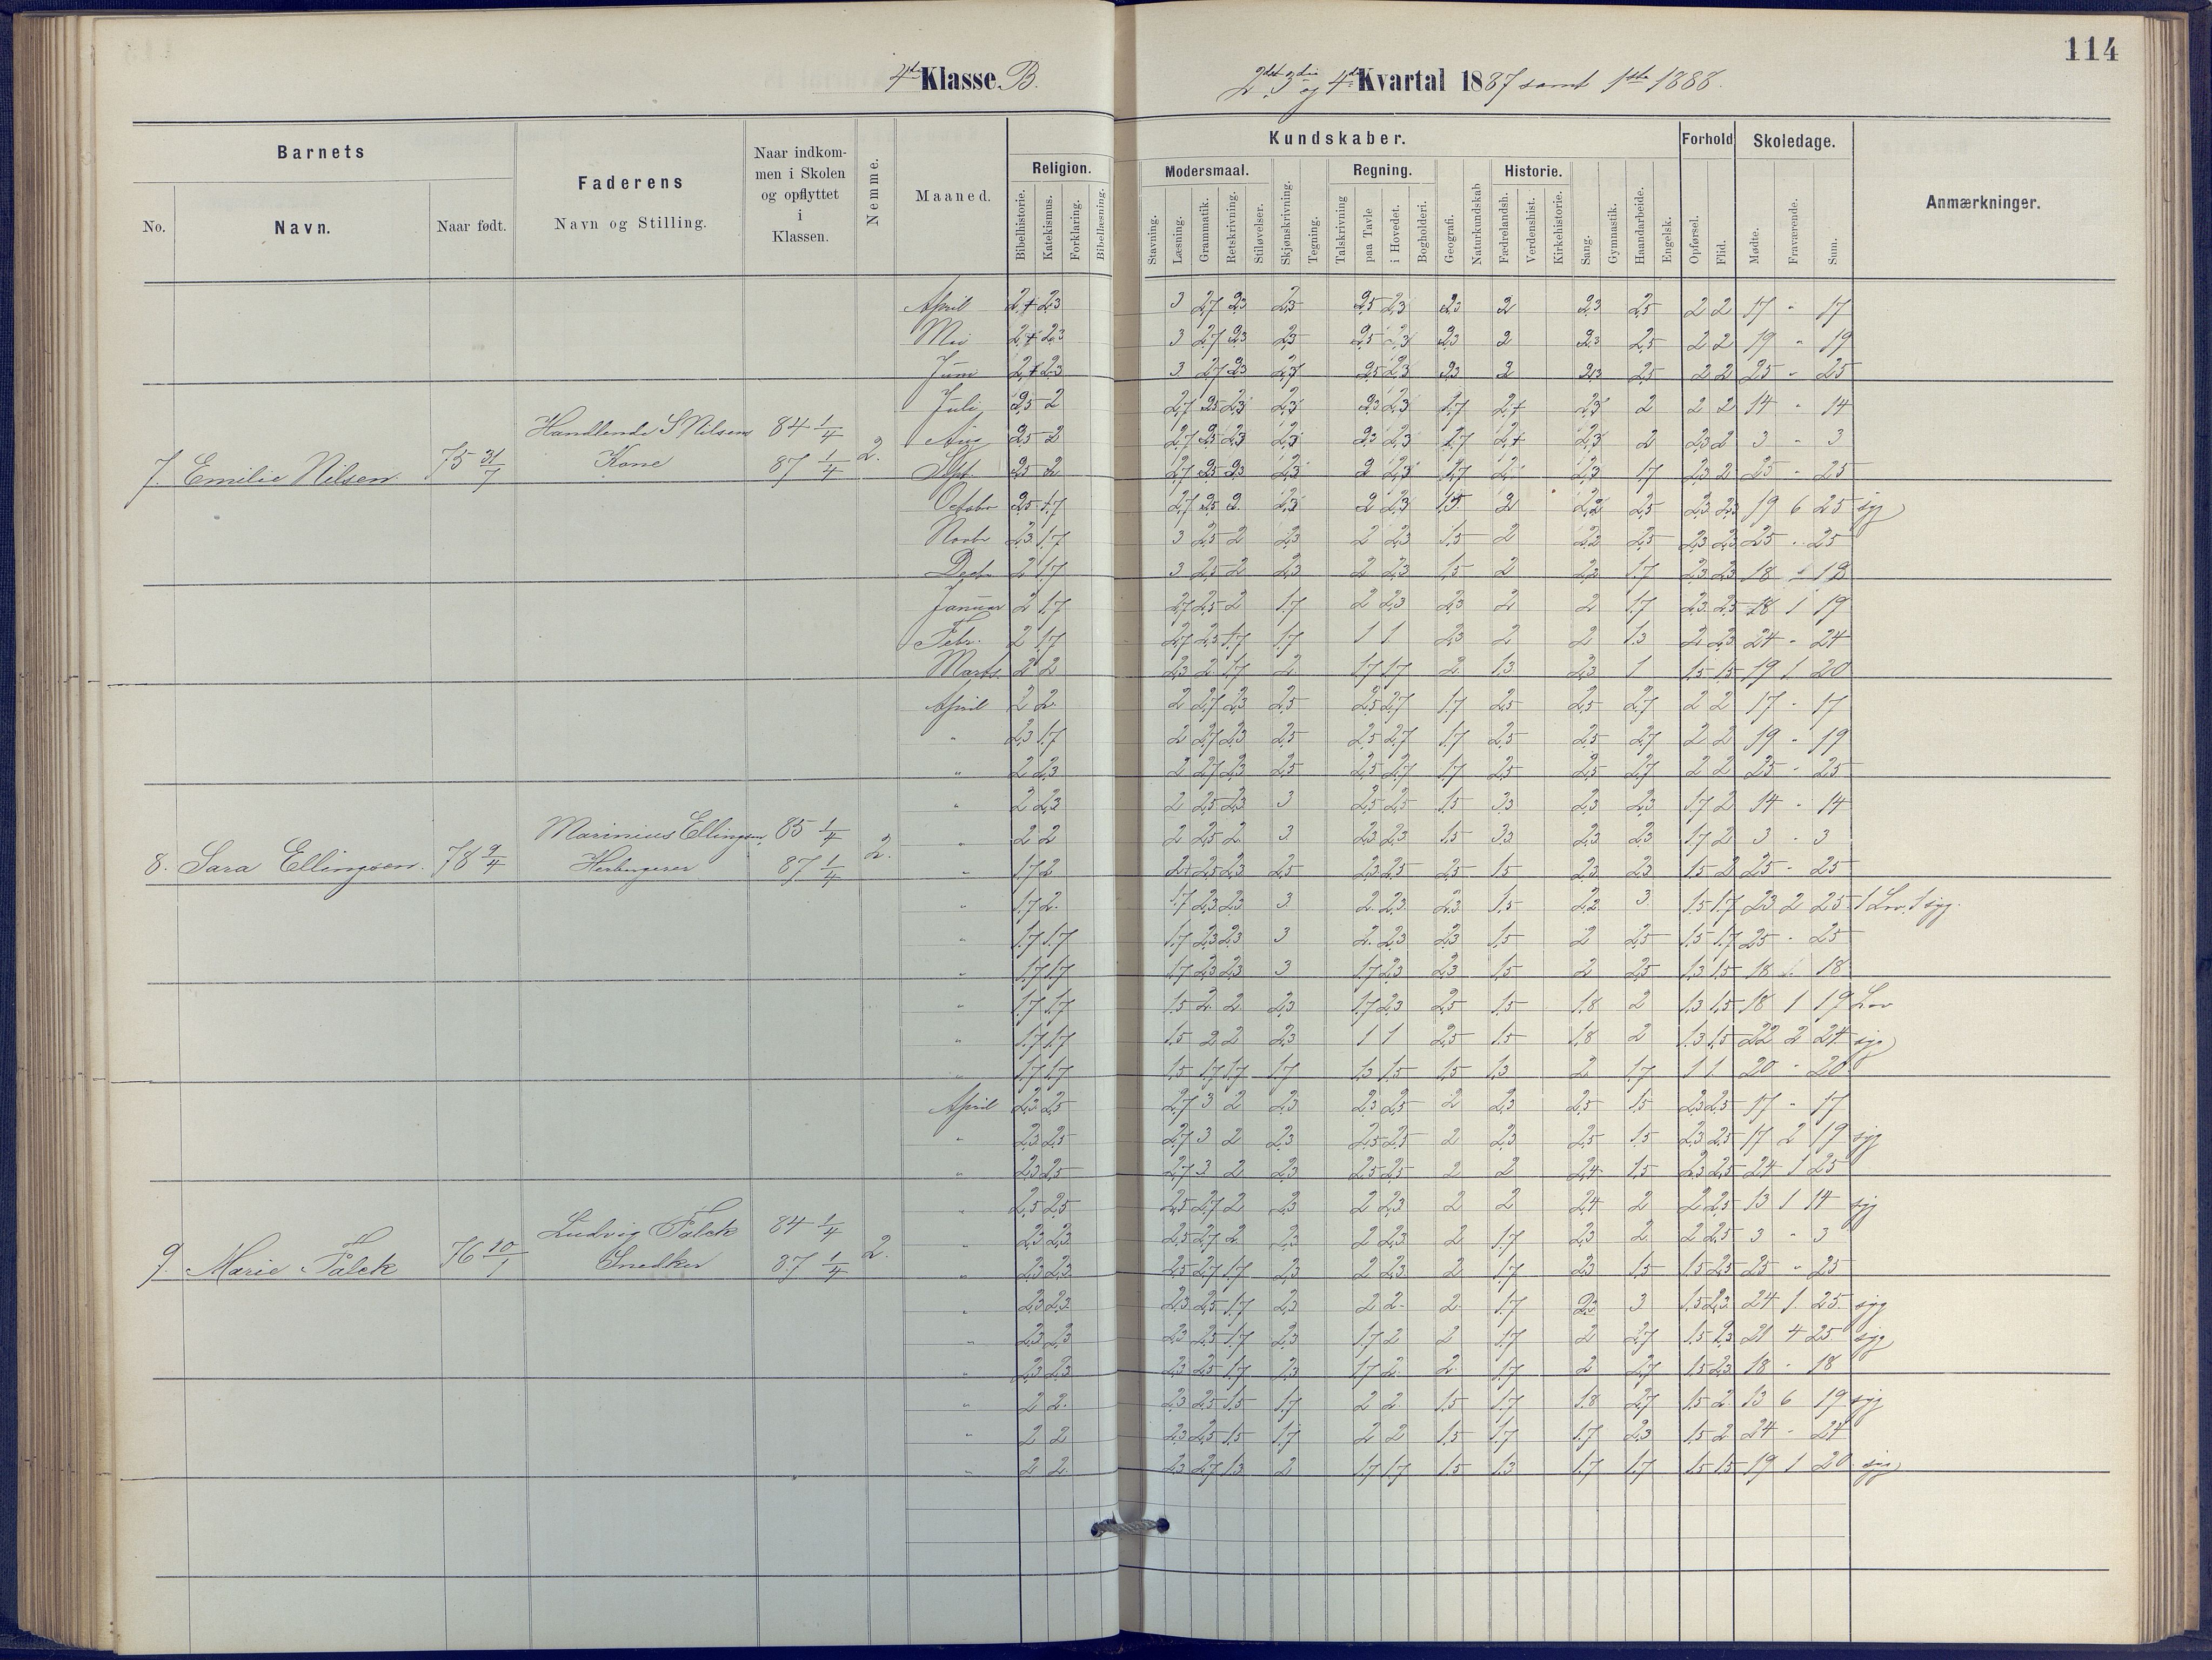 114
4de Klasse B.
2det 3die og 4de Kvartal 1887 samt 1ste 1888.
Barnets
Faderens
Naar indkommen i Skolen og opflyttet i Klassen.
Nemme.
Maaned.
Religion.
Kundskaber.
Forhold
Skoledage.
Anmærkninger.
Modersmaal.
Regning.
Historie.
No.
Navn.
Naar født.
Navn og Stilling.
Bibelhistorie.
Katekismus.
Forklaring.
Bibellæsning.
Stavning.
Læsning.
Grammatik.
Retskrivning.
Stiløvelser.
Skjønskrivning.
Tegning.
Talskrivning
paa Tavle
i Hovedet.
Bogholderi.
Geografi.
Naturkundskab
Fædrelandsh.
Verdenshist.
Kirkehistorie.
Sang.
Gymnastik.
Haandarbeide.
Engelsk.
Opførsel.
Flid.
Mødte.
Fraværende.
Sum.
April 2+ 2,3 3 2,7 2,3 2,3 2,5 2,3 2,3 2 2,3 2,5 2 2 17 - 17
Mai 2+ 2,3 3 2,7 2,3 2,3 2,5 2,3 2,3 2 2,3 2,5 2 2 19 - 19
Juni 2+ 2,3 3 2,7 2,3 2,3 2,5 2,3 2,3 2 2,3 2,5 2 2 25 - 25
Juli 2,5 2 2,7 2,5 2,3 2,3 2,3 2,3 1,7 2+ 2,3 2 2 2 14 - 14
Aug 2,5 2 2,7 2,5 2,3 2,3 2,3 2,3 1,7 2+ 2,3 2 2,3 2 3 - 3
Sept. 2,5 2 2,7 2,5 2,3 2,3 2 2,3 1,7 2 2,3 1,7 2,3 2 25 - 25
7. Emilie Nilsen. 75 31/7 Handlende S Nilsens Kone 84 1/4 87 1/4 2.
Octobr 2,5 1,7 2,7 2,5 2 2,3 2 2,3 1,5 2 2,2 2,5 2,3 2,3 19 6 25 syg
Novbr 2,3 1,7 3 2,5 2 2,3 2 2,3 1,5 2 2,2 2,5 2,3 2,3 25 - 25
Decbr 2 1,7 3 2,5 2 2,3 2 2,3 1,5 2 2,2 1,7 2,3 2,3 18 - 18
Januar 2 1,7 2,7 2,5 2 1,7 2 2,3 2,3 2 2 1,7 2,3 2,5 18 1 19
Febr. 2 1,7 2,7 2,5 1,7 1,7 1 1 2,3 2 2 1,3 2 2,3 24 - 24
Marts. 2 2 2,3 2 1,7 2 1,7 1,7 2 1,3 2,3 1 1,5 1,5 19 1 20
April 2 2 2 2,7 2,3 2,5 2,5 2,7 1,7 2,5 2,5 2,7 2 2 17 - 17
" 2,3 1,7 2 2,7 2,3 2,5 2,5 2,7 1,7 2,5 2,5 2,7 2 2 19 - 19
" 2 2,3 2 2,7 2,3 2,5 2,5 2,7 1,7 2,5 2,5 2,7 2 2 25 - 25
" 2 2,3 2 2,5 2,3 3 2,5 2,5 1,5 2,3 2,3 2,3 1,7 2 14 - 14
" 2 2 2 2,5 2 3 2,3 2,3 1,5 2,3 2,3 2,3 1,7 2 3 - 3
8. Sara Ellingsen. 78 9/4 Marinius Ellingsen, Herbergerer 85 1/4 87 1/4 2.
" 1,7 2 2+ 2,5 2,3 2,5 2,3 2,5 2,5 1,5 2,3 2,3 1,5 2 25 - 25
" 1,7 2 1,7 2,3 2,3 3 2 2,3 2,3 1,5 2,2 3 1,5 1,7 23 2 25 1 Lov. 1 syg.
" 1,7 1,7 1,7 2,3 2,3 3 2 2,3 2,3 1,5 2 2,5 1,5 1,7 25 - 25
" 1,7 1,7 1,7 2,3 2,3 3 1,7 2,3 2,3 1,5 2 2,5 1,3 1,5 18 18
" 1,7 1,7 1,5 2 2 2,3 1,7 2,3 2,5 1,5 1,8 2 1,3 1,5 18 1 19 Lov
" 1,7 1,7 1,5 2 2 2,3 1 1 2,5 1,5 1,8 2 1,3 1,5 22 2 24 syg
" 1,7 1,7 1,5 1,7 1,7 1,7 1,3 1,5 1,5 1,3 2 1,7 1 1 20 - 20
April 2,3 2,5 2,7 3 2 2,3 2,3 2,5 2 2,3 2,5 1,5 2,3 2,5 17 - 17
" 2,3 2,5 2,7 3 2 2,3 2,5 2,5 2 2,3 2,5 1,5 2,3 2,5 17 2 19 syg
" 2,3 2,5 2,7 3 2 2,3 2,5 2,5 2 2 2,4 1,5 2,3 2,5 24 1 25
" 2,5 2,5 2,5 2,7 2 2,3 2 2,3 2 2 2,4 2 2 2,5 13 1 14 syg
" 2,3 2,3 2,5 2,7 2 2,3 2 2,3 2 1,7 2,3 2 2 2,5 3 - 3
9. Marie Falck 76 10/1 Ludvig Falck Snedker 84 1/4 87 1/4 2.
" 2,3 2,3 2,5 2,7 1,7 2,3 2 2,3 2 1,7 2,3 1,5 1,5 2,5 25 - 25
" 2,3 2,3 2,3 2,5 1,7 2,3 2 2 2 1,7 2,3 3 1,5 2,3 24 1 25 syg
" 2,3 2,3 2,3 2,5 1,7 2,3 1,7 2 2 1,7 2 2,7 1,5 2,3 21 4 25 syg
" 2,3 2,3 2,3 2,5 1,7 2,3 1,7 2 2 1,7 2 2,7 1,5 2,3 18 - 18
" 2 2 2,3 2,5 1,5 1,7 2 2 1,5 1,7 1,8 2,7 1,5 2 13 6 19 syg
" 2 2 2,3 2,5 1,5 1,7 2 2 1,5 1,7 1,7 2,3 1,5 2 24 - 24
" 2 2 2,3 2,7 1,3 2 1,7 1,7 1,5 1,3 1,7 1,7 1,5 1,5 19 1 20 syg